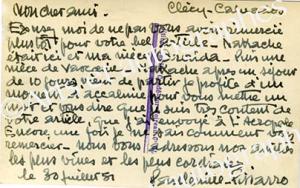 Mon cher ami. Clécy-Calvados
Excusez moi de ne pas vous avoir remercié
plutôt pour votre bel article
était ici et ma nièce Puis une
nièce de après un séjour
de 10 jours vient de partir. Je profite d'un
moment d'accalmie pour vous mettre un
mot et vous dire que je suis très content de
votre article. que j'ai envoyé à
Encore une fois je ne sais comment vous
remercier. nous vous adressons nos amitiés
les plus vives et les plus cordiales
le 30 juillet 51 Paulémile Pissarro